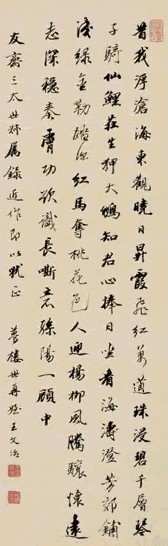 昔我浮滄海東觀曉日昇霞飛紅萬道珠浸碧千層
子騎仙鯉莊生狎大鵬知君心捧日坐看海濤澄芳郊鋪
淺綠金勒踏紅馬奪桃花色人迎楊柳風騰驤懷遠
志深穩奏膚功欲識長嘶意孫陽一顧中
友齋三太世妹屬錄近作即以就正
夢樓世再姪王文治